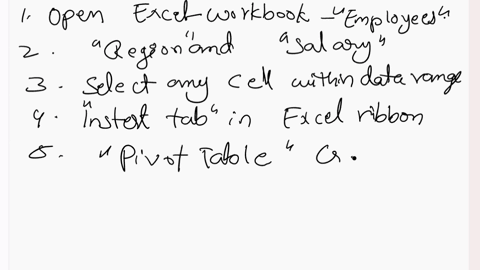 1. Open Excel workbook - "Employees".
2. "Region" and "Salary"
3. Select any cell within data range
4. "Insert tab" in Excel ribbon
5. "Pivot Table" Cr.